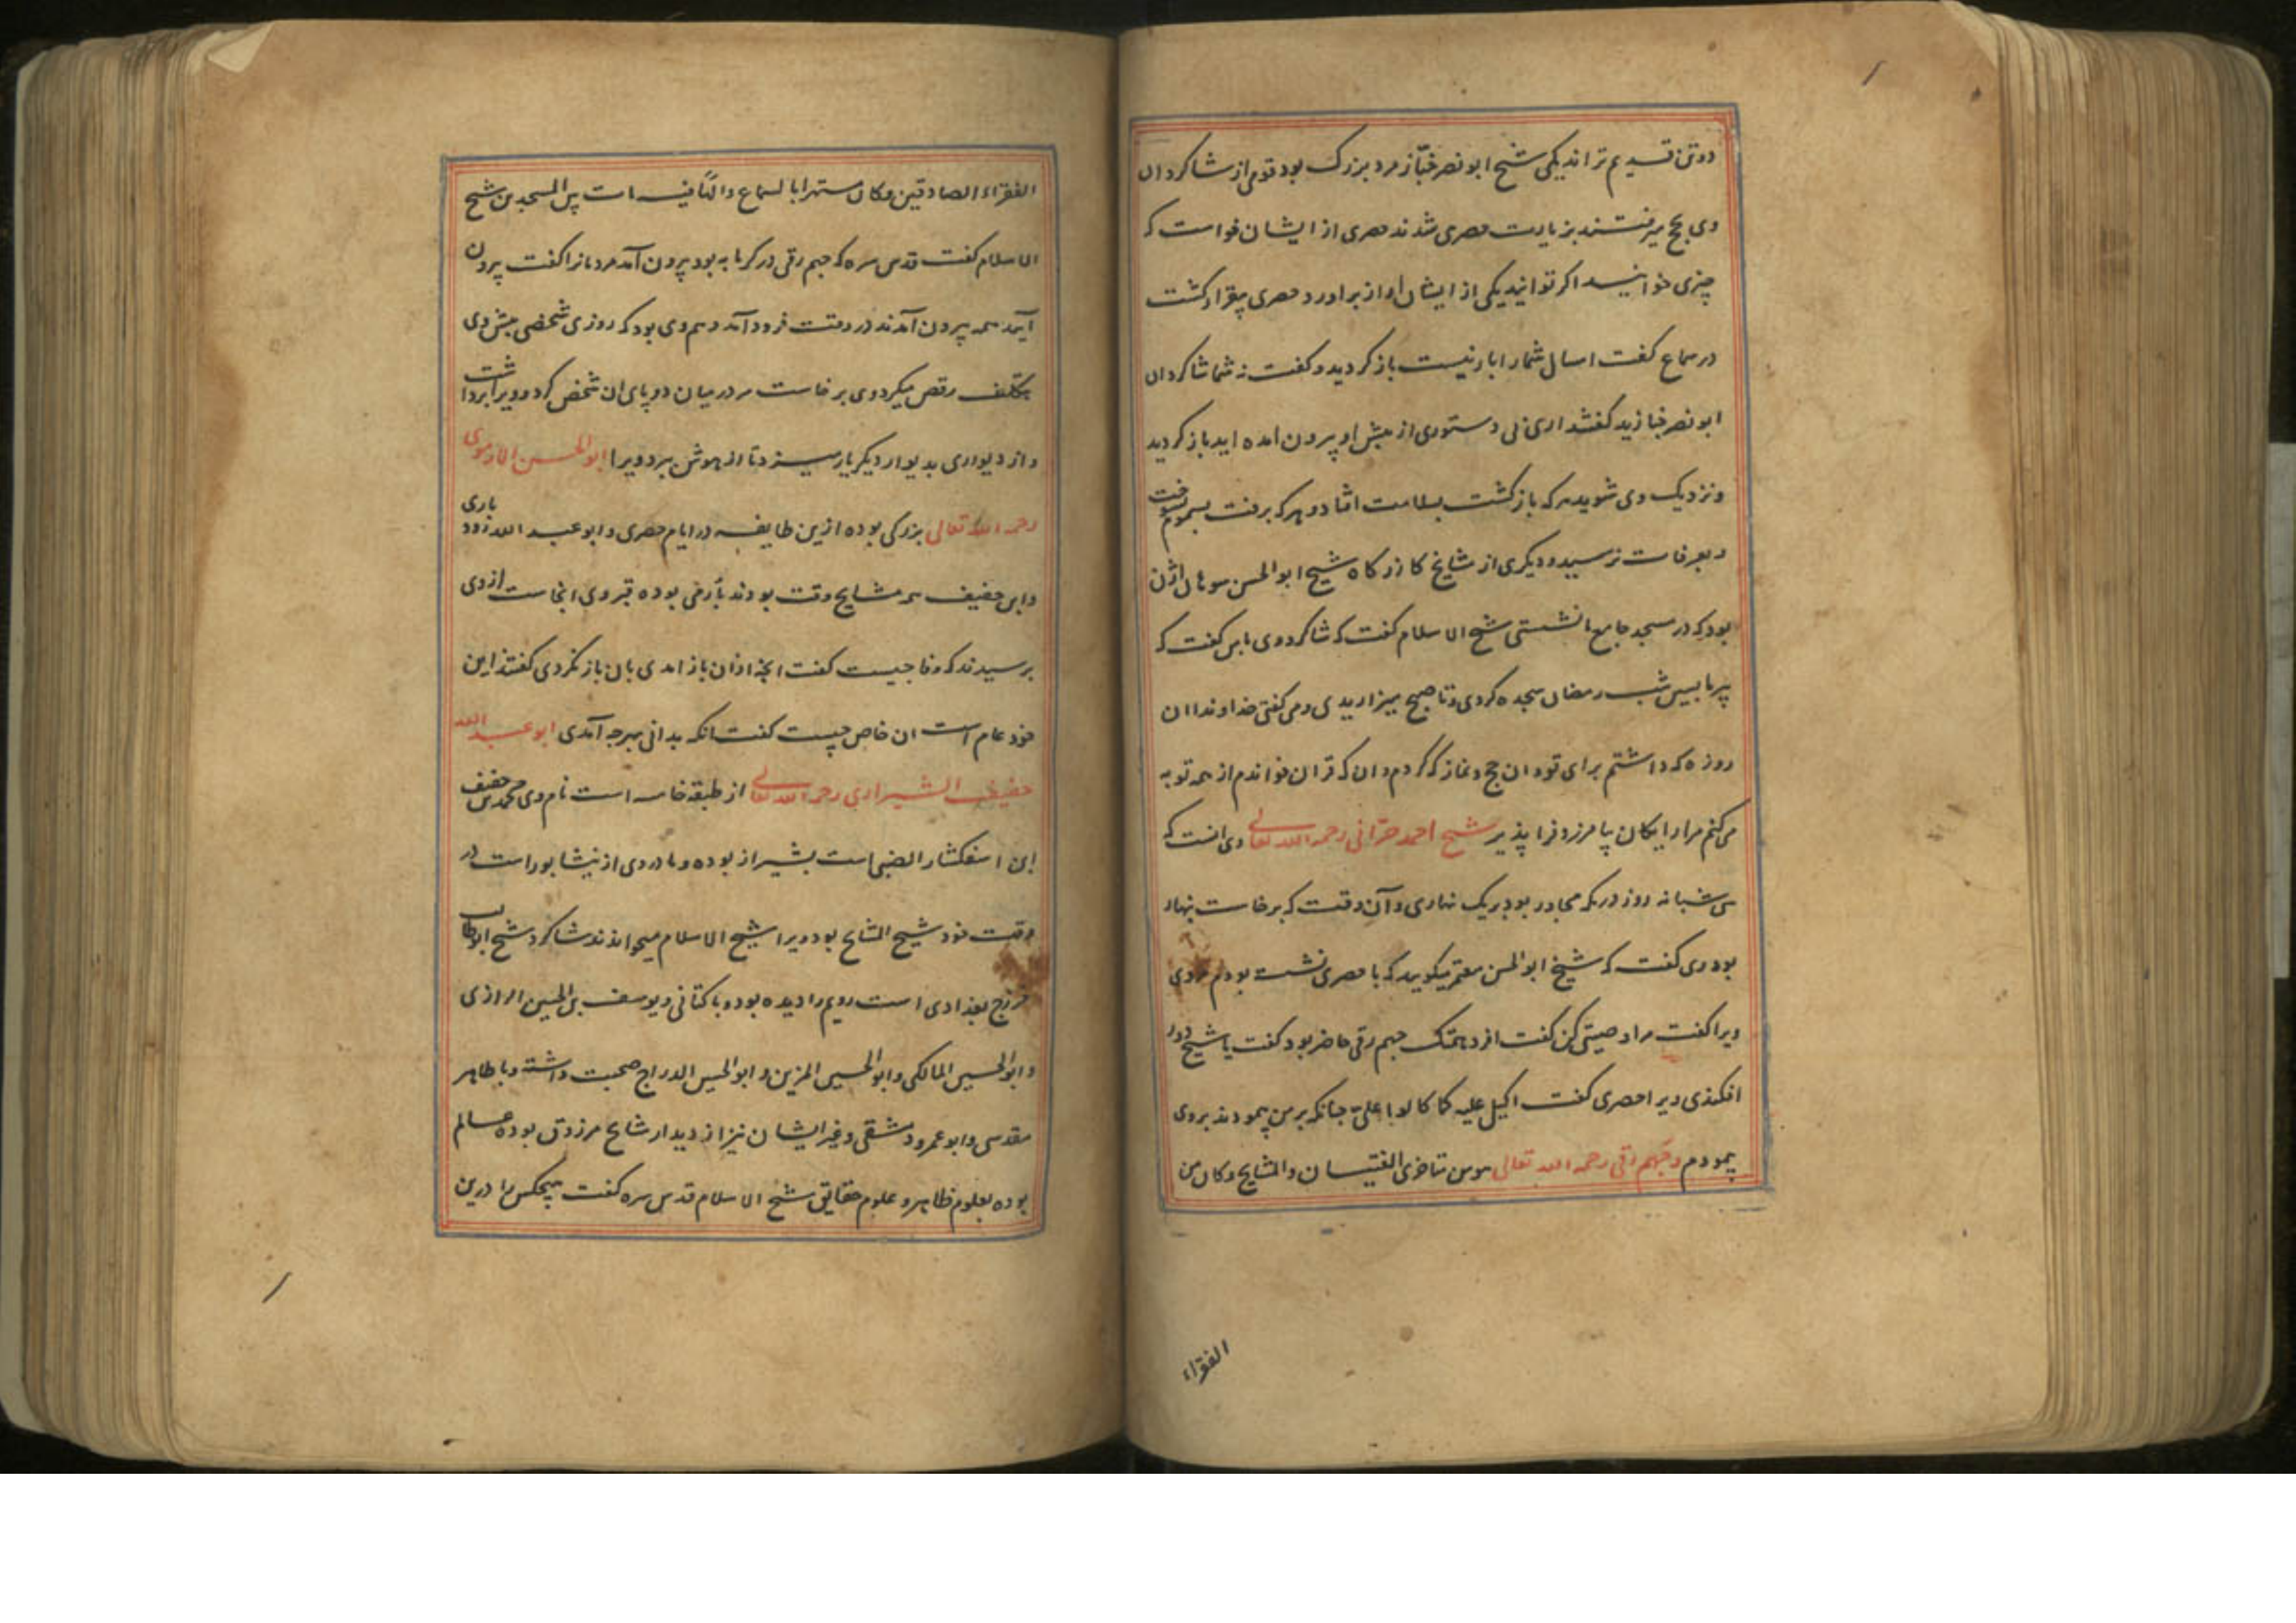 دوتن قدیم تر اند یکی شیخ ابونصر خبّاز مرد بزرک بود قومی از شاکردان
وی بحج میرفتند بزیارت حصری شدند حصری از ایشان خواست که
چیزی خوانید اکر توانید یکی از ایشان اواز براورد حصری بیقرار کشت
در سماع کفت امسال شما را بار نیست باز کردید و کفت نه شما شاکردان
ابونصر خبازید کفتند اری بی دستوری از پیش او بیرون امده اید باز کردید
ونزدیک وی شوید هرکه بازکشت بسلامت افتاد و هرکه برفت بسموم بسوخت
و بعرفات نرسید و دیکری از مشایخ کازرکاه شیخ ابوالحسن سوهان اژن
بود که در مسجد جامع نشستی شیخ الاسلام کفت که شاکرد وی بامن کفت که
پیر ما بیس شب رمضان سجده کردی و تا صبح میزاریدی و می کفتی خداوندا ان
روزه که داشتم برای تو و ان حج و نماز که کردم و ان که قران خواندم از همه توبه
می کنم مرا رایکان بیامرز و فرا پذیر شیخ احمد حرّانی رحمه الله تعالی وی انست که
سی شبانه روز در مکه مجاور بود بر یک نهاری و آن وقت که برخاست بنهار
بود وی کفت که شیخ ابوالحسن معتمر میکوید که با حصری نشسته بودم مردی
ویرا کفت مرا وصیتی کن کفت افرد همّتک جهم رقی حاضر بود کفت یا شیخ دور
افکندی ویرا حصری کفت اکیل علیه کما کالوا علیّ چنانکه بر من پیمودند بر وی
پیمودم وجهم رقی رحمه الله تعالی هو من متاخری الفتیان والمشایخ وکان من
الفقراء
الفقراء الصادقین وکان مستهترا بالسماع والهًا فیه مات بین المسجدین شیخ
الاسلام کفت قدس سره که جهم رقی در کرمابه بود بیرون آمد مردمانرا کفت بیرون
آیید همه بیرون آمدند در وقت فرود آمد و هم وی بود که روزی شخصی پیش وی
بتکلف رقص میکرد وی برخاست سر در میان دو پای ان شخص کرد و ویرا برداشت
و از دیواری بدیوار دیکر بازمیزد تا از هوش ببرد ویرا ابوالحسن الارموی
رحمه الله تعالی بزرکی بوده ازین طایفه در ایام حصری و ابو عبد الله رودباری
وابن خفیف همه مشایخ وقت بودند بارمی بوده قبر وی انجاست از وی
پرسیدند که وفا چیست کفت انچه ازان باز امدی بان باز نکردی کفتند این
خود عام است ان خاص چیست کفت انکه بدانی بهرچه آمدی ابو عبد الله
خفیف الشیرازی رحمه الله تعالی از طبقه خامسه است نام وی محمد بن خفیف
ابن اسفکشار الضبی است بشیراز بوده و مادر وی از نیشابور است در
وقت خود شیخ المشایخ بود ویرا شیخ الاسلام میخواندند شاکرد شیخ ابوطالب
خزرج بغدادی است رویم را دیده بود و با کتانی ویوسف بن الحسین الرازی
وابوالحسین المالکی وابوالحسین المزین و ابوالحسین الدراج صحبت داشته و با طاهر
مقدسی و ابو عمرو دمشقی وغیر ایشان نیز از دیدار مشایخ مرزوق بوده عالم
بوده بعلوم ظاهر و علوم حقایق شیخ الاسلام قدس سره کفت هیچکس را درین